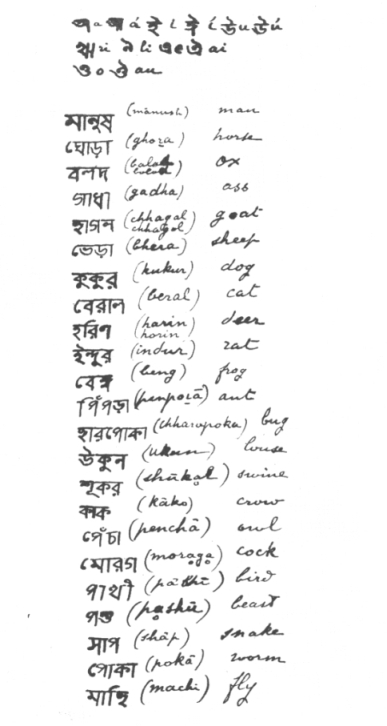 অ a আ á ই i ঈ í উ u ঊ ú
ঋ ri ঌ li এ e ঐ ai
ও o ঔ au
মানুষ (mānush) man
ঘোড়া (ghoṛa) horse
বলদ ox
গাধা (gadha) ass
ছাগল (chhagal) goat
chhagol
ভেড়া (bhera) sheep
কুকুর (kukur) dog
বেরাল (beral) cat
হরিণ (harin) deer
horin
ইন্দুর (indur) rat
বেঙ্গ (beng) frog
পিঁপড়া ant
ছারপোকা (chharopoka) bug
উকুন (ukun) louse
শূকর swine
কাক (kāko) crow
পেঁচা (penchā) owl
মোরগ (moraga) cock
পাখী bird
পশু (pashū) beast
সাপ (shāp) snake
পোকা (pokā) worm
মাছি (machi) fly